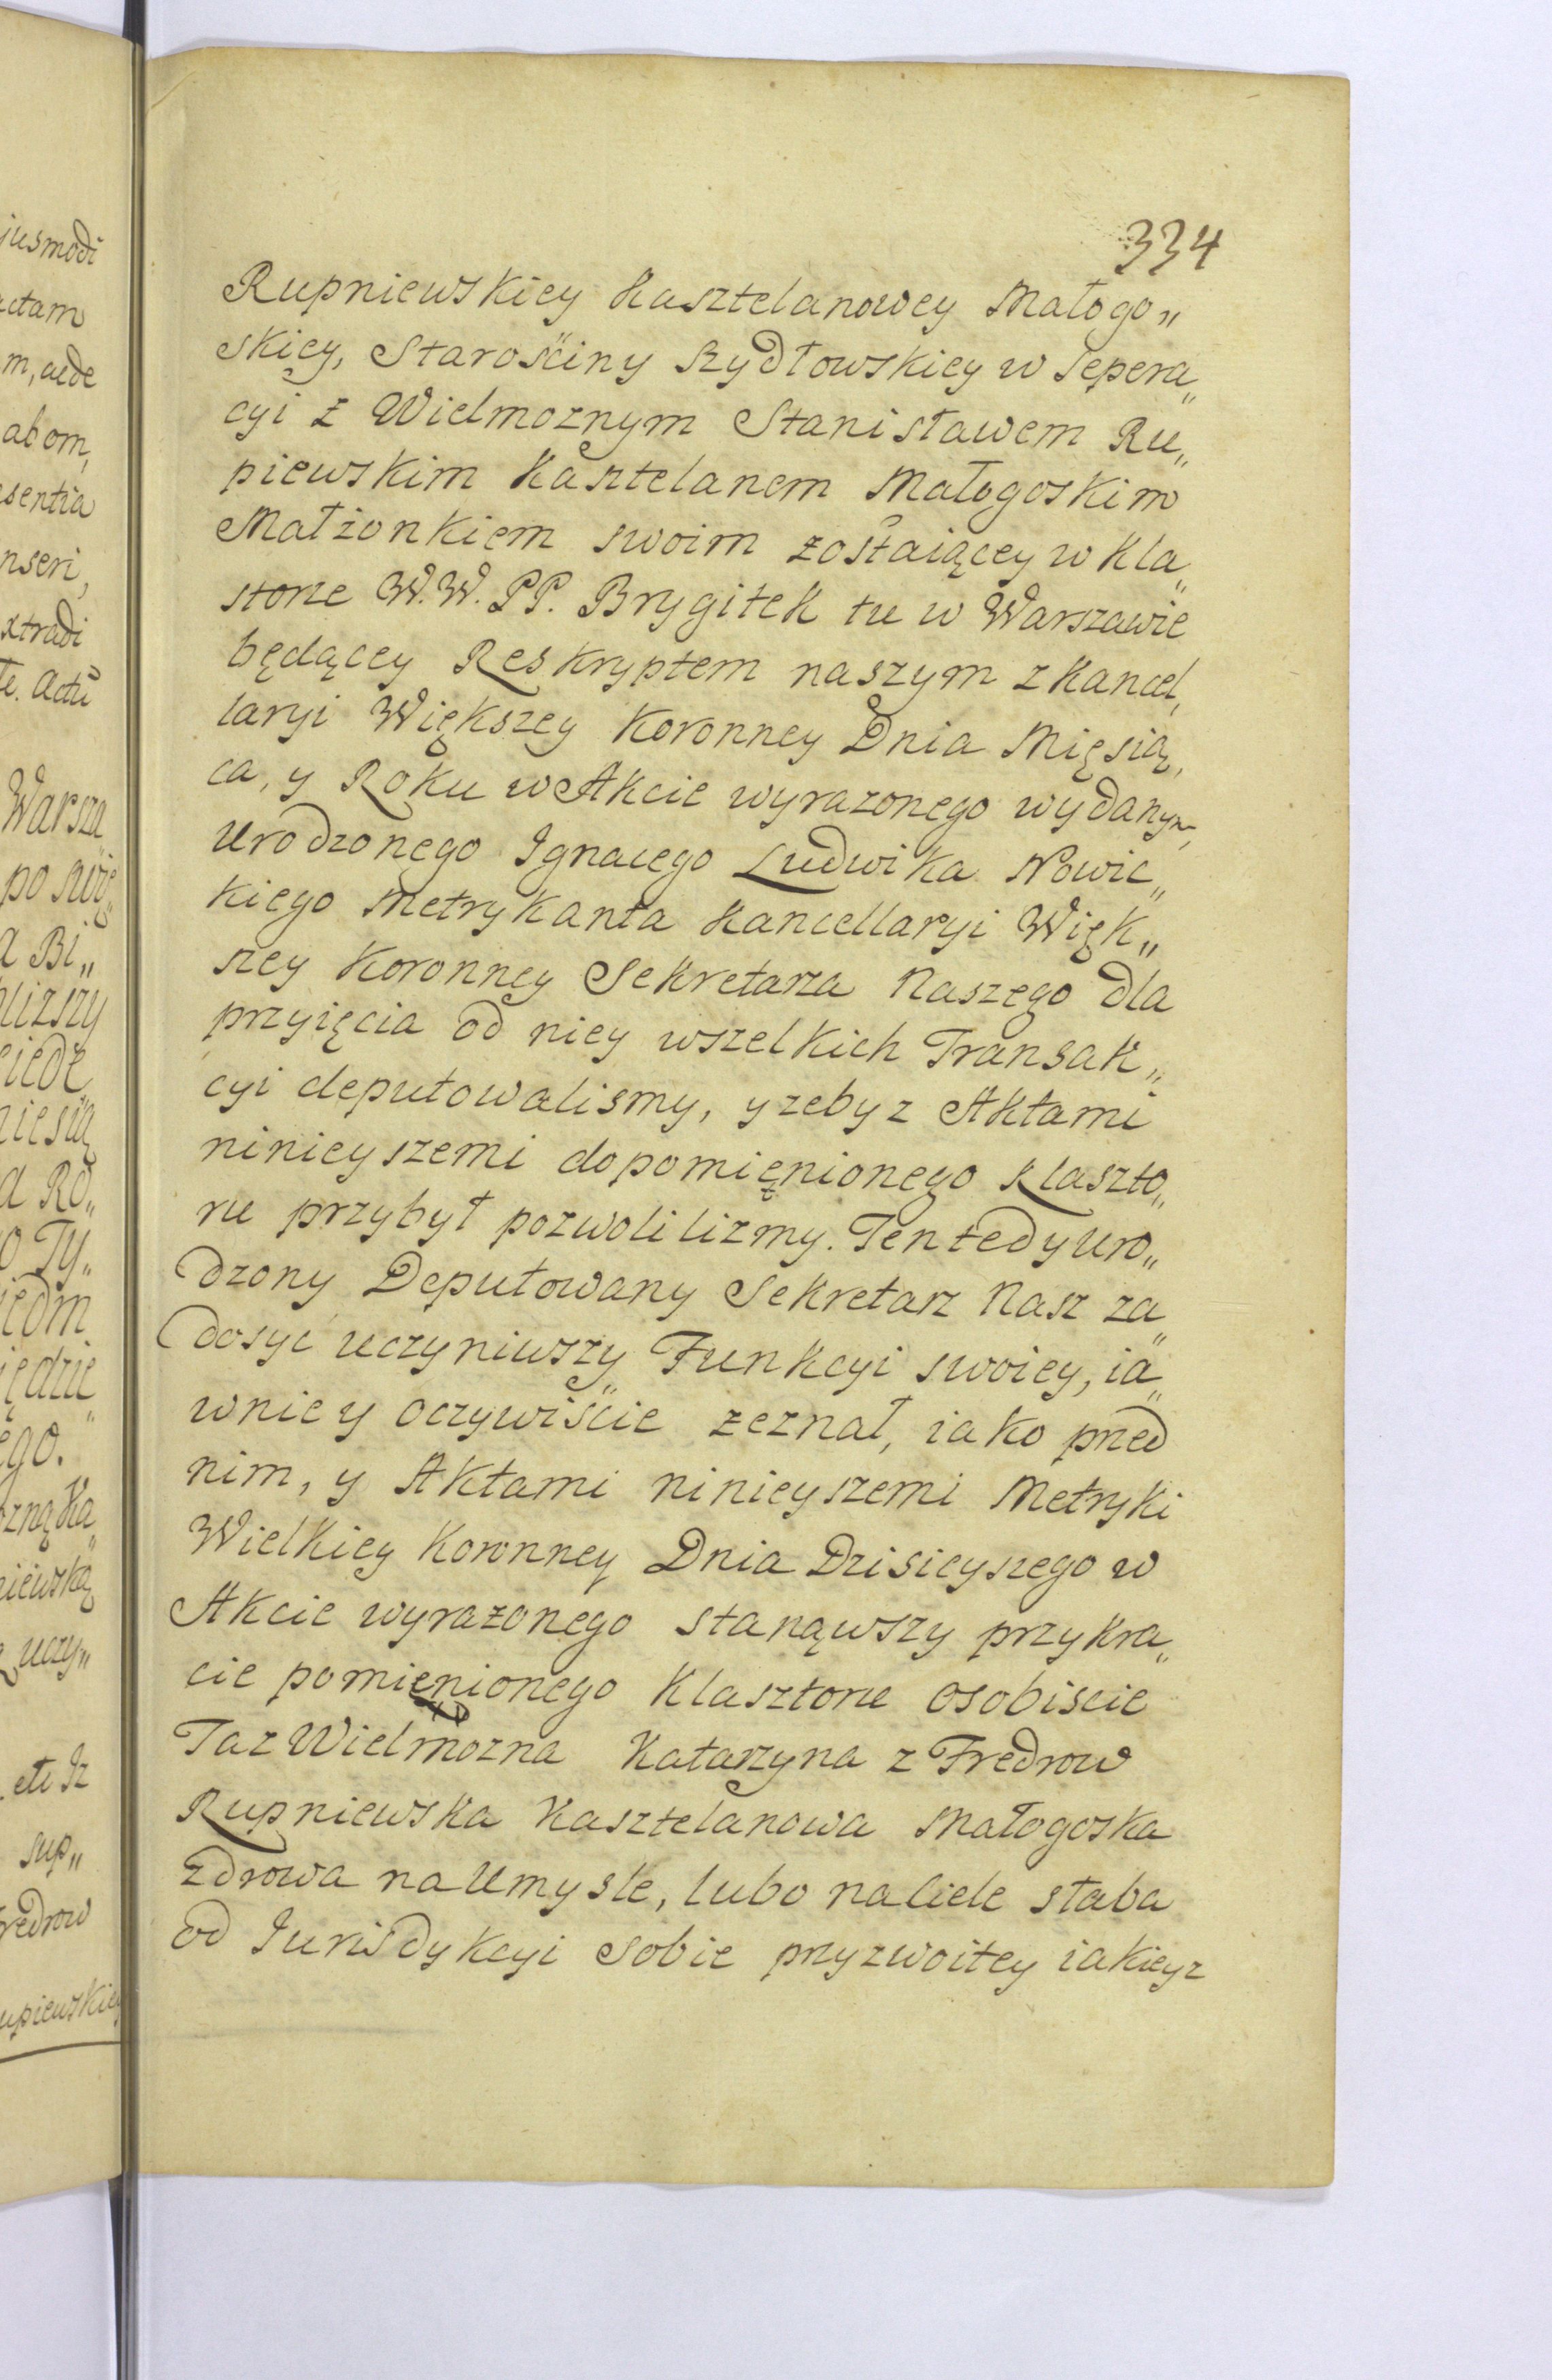 334
Rupniewskiey Kasztelanowey Małogo„
skiey, Starościny Szydłowskiey w Sepera„
cyi z Wielmoznym Stanisławem Ru„
piewskim Kasztelanem Małogoskim
Małżonkiem swoim zostaiącey w Kla„
storze W.W. PP. Brygitek tu w Warszawie
będącey Reskryptem naszym z Kancel„
laryi Większey Koronney Dnia Miesią„
ca, y Roku w Akcie wyrazonego wydanym,
Urodzonego Ignacego Ludwika Nowic„
kiego Metrykanta Kancellaryi Więk„
szey Koronney Sekretarza Naszego dla
przyięcia od niey wszelkich Transak„
cyi deputowalismy, y zeby z Aktami
ninieyszemi do pomięnionego Klaszto„
ru przybył pozwolilizmy. Ten tedy Uro„
dzony Deputowany Sekretarz Nasz za„
dosyć uczyniwszy Funkcyi swoiey, ia„
wnie y oczywiście zeznał, iako przed
nim, y Aktami ninieyszemi Metryki
Wielkiey Koronney Dnia Dzisieyszego w
Akcie wyrażonego stanąwszy przy kra„
cie pomięnionego Klasztoru osobiscie
Taz Wielmozna Katarzyna z Fredrow
Rupniewska Kasztelanowa Małogoska
zdrowa na Umysle, lubo na ciele słaba
od Iurisdykcyi sobie przyzwoitey iakieyz
jusmodi
ctam
m, aede
abom,
sentia
nseri,
xtradi
te. Actu
Warsza„
po swię„
a Bi„
lizszy
iede„
iesią
a Ro„
o Ty„
iedm
iędzie„
ego.
zną Ka„
niewską
uczy„
etc Iz
sup„
redrow
upiewskiey